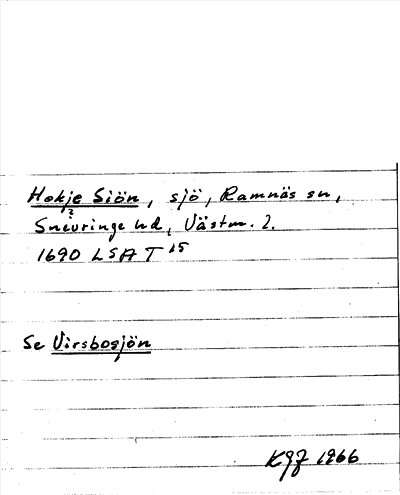 Hokje Siön, sjö, Ramnäs sn,
?
Snevringe hd, Västm. l.
1690 LSA T 15
Se Virsbosjön
KGF 1966